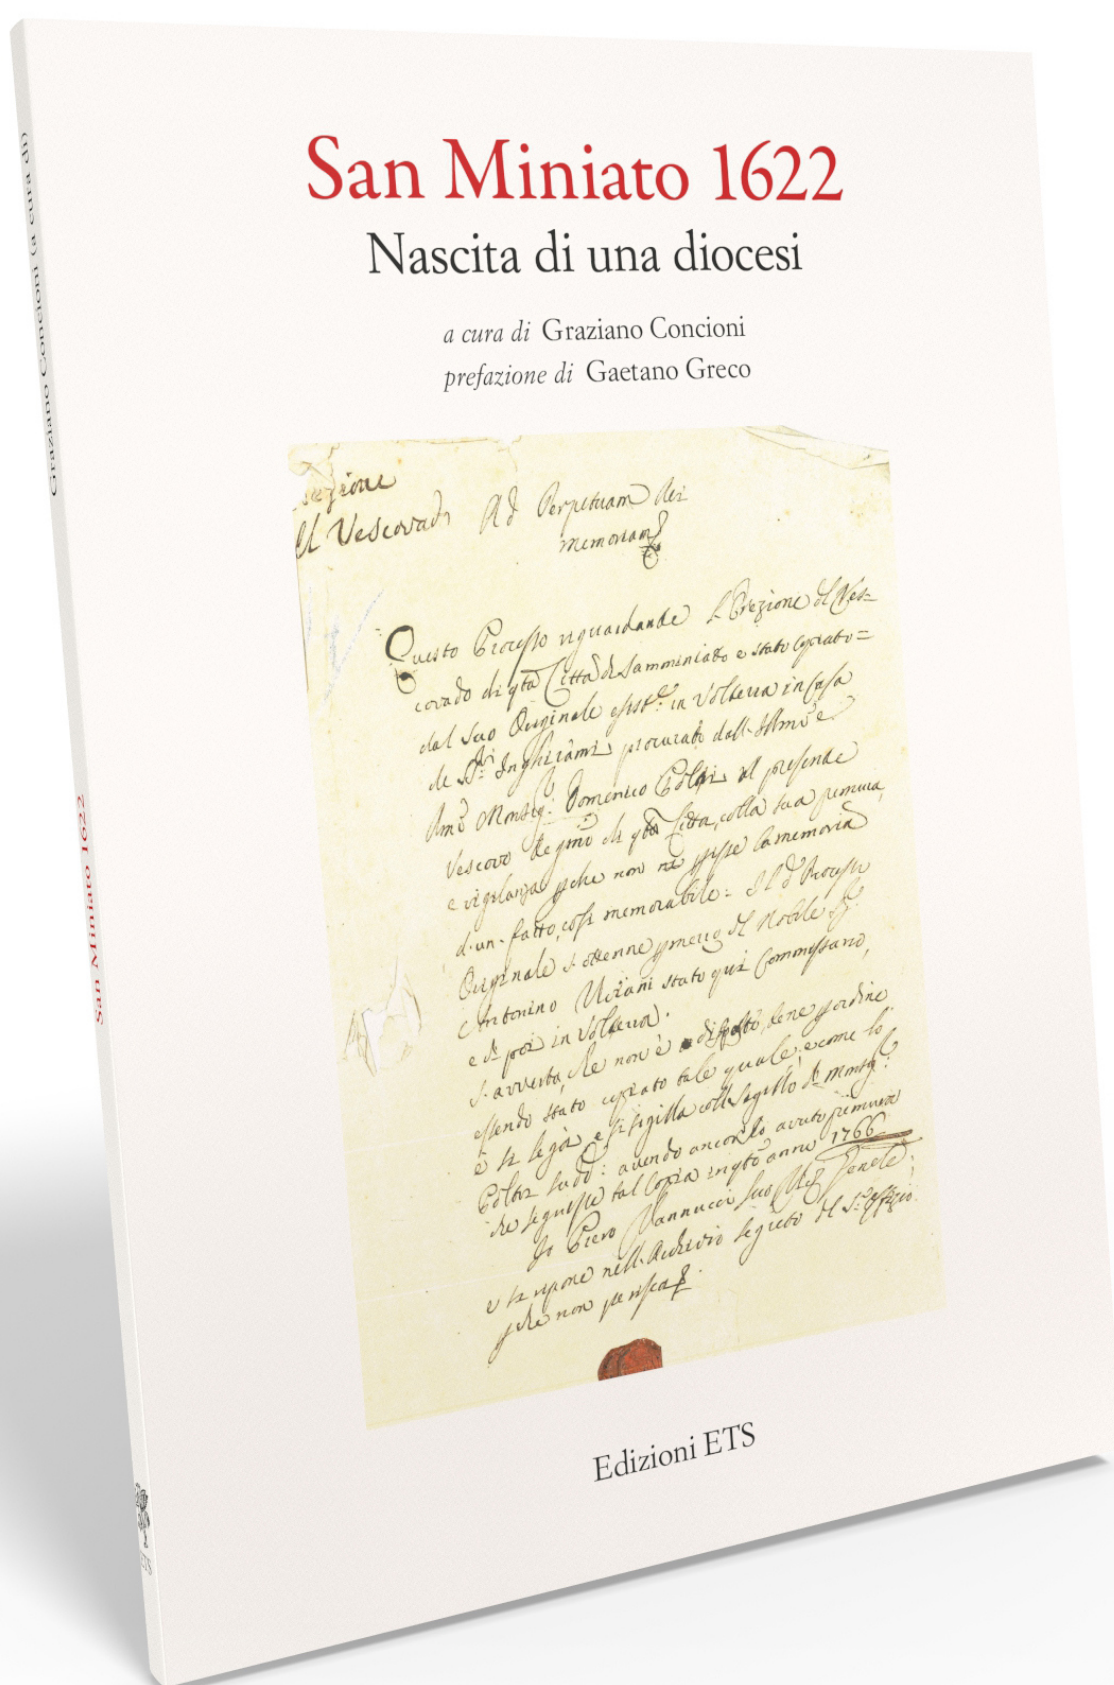 San Miniato 1622
Nascita di una diocesi
a cura di Graziano Concioni
prefazione di Gaetano Greco
Vescovado Ad Perpetuam Rei
memoriam
Questo Processo riguardante l'Erezione del Ves=
covado di qta Città di Samminiato e stato copiato=
dal suo Originale esist:e in Volterra in Casa
de SS:ri Inghirami procurato dall' Illmo e
Rmo Monsig: Domenico Poltri al presente
Vescovo degmo di qta Città, colla sua premura,
e vigilanza pche non ne la memoria
d'un fatto, così memorabile: Il do Processo
Originale s'ottenne p mezzo del Nobile Sig:
Antonino Viviani stato qui Commissario,
e poi in Volterra.
S'avverta, che non è disposto, bene p ordine
essendo stato copiato tale quale, e come lo
è si lega, e si sigilla col Sigillo di Monsig:
Poltri sudo: avendo ancor lo avuto premura
che seguisse tal Copia in qto anno 1766
Io Piero Vannucci suo
e si ripone nell' Archivio segreto del S: Offizio
pche non perisca
Edizioni ETS
Graziano Concioni (a cura di)
San Miniato 1622
ETS